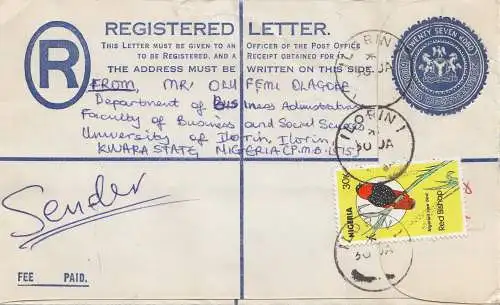 REGISTERED LETTER.
THIS LETTER MUST BE GIVEN TO AN OFFICER OF THE POST OFFICE
TO BE REGISTERED, AND A RECEIPT OBTAINED FOR IT
THE ADDRESS MUST BE WRITTEN ON THIS SIDE
R
TWENTY SEVEN KOBO
FROM, MR OLU FEMI OLAGOKE
Department of Business Administration
Faculty of Business and Social Sciences
University of Ilorin, Ilorin,
KWARA STATE, NIGERIA (P.M.B. 1515)
ILORIN 1
30 JA
ILORIN 1
30 JA
30 JA
30K
NIGERIA
Red Bishop
Sender
FEE PAID.